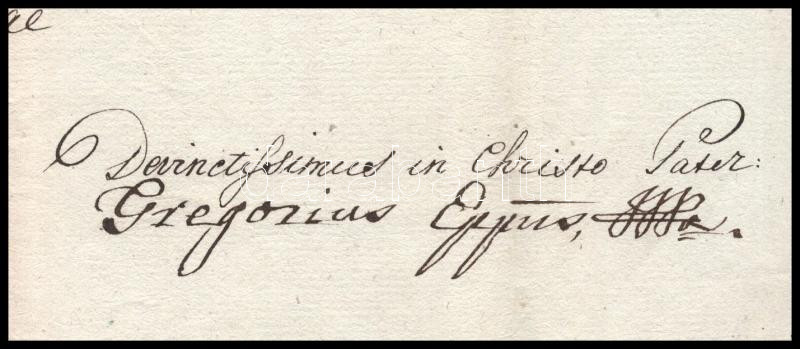 ae
Devinctissimus in Christo Pater:
Gregorius Eppus,